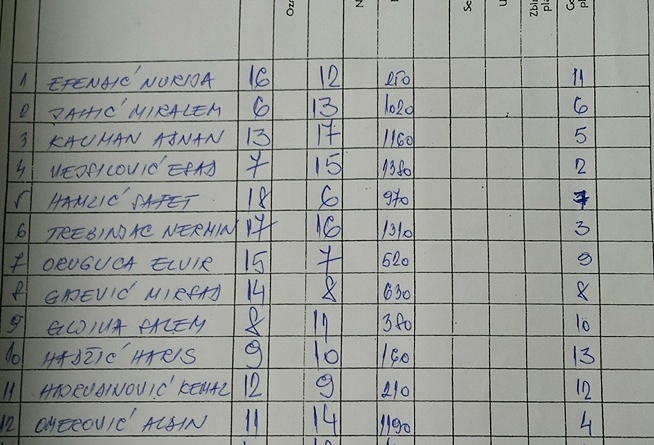 Ozn N Se U Zbir pla Go pl
1 EFENDIĆ NURIJA 16 12 250 11
2 JAHIĆ MIRALEM 6 13 1020 6
3 KAUMAN ADNAN 13 17 1160 5
4 VEJSILOVIĆ ESAD 7 15 1380 2
5 HAMZIĆ SAFET 18 6 970 7
6 TREBINJAC NERMIN 17 16 1310 3
7 ORUGLICA ELVIR 15 7 520 9
8 14 8 630 8
9 SALEM 8 11 380 10
10 HADŽIĆ HARIS 9 10 160 13
11 KEMAL 12 9 210 12
12 OMEROVIĆ ALDIN 11 14 1190 4